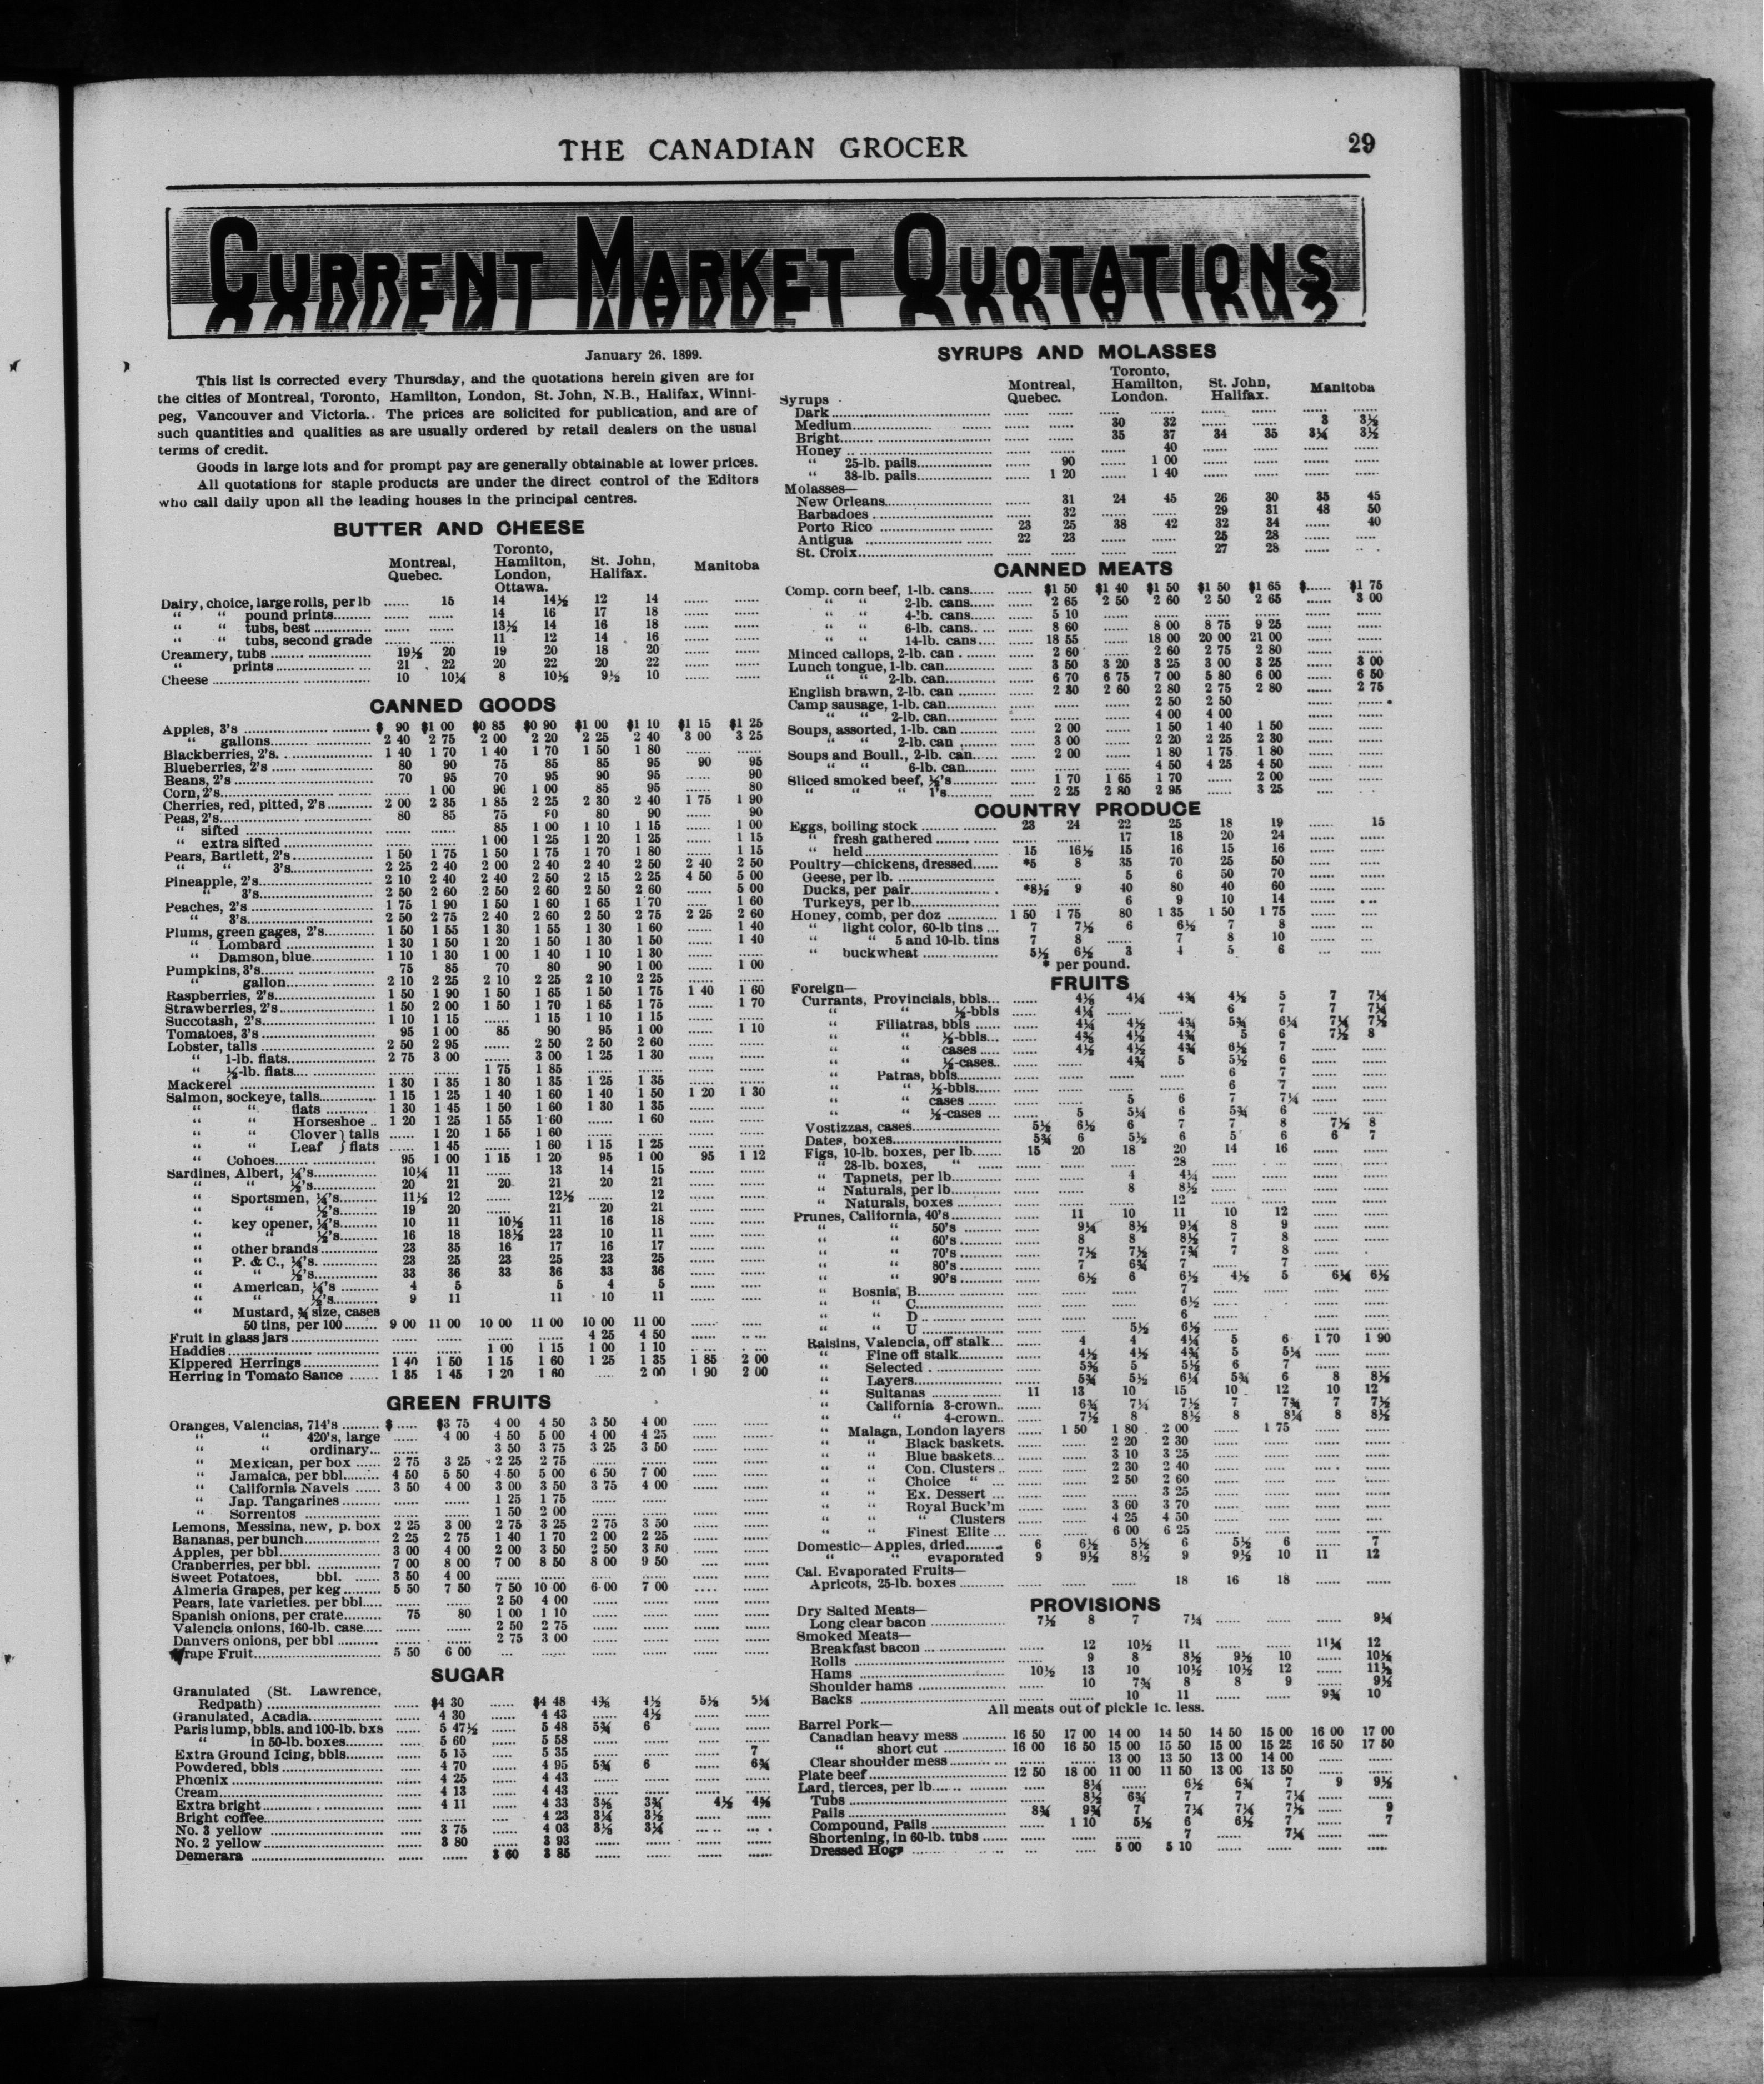 THE CANADIAN GROCER 29
CURRENT MARKET QUOTATIONS
January 26, 1899.
This list is corrected every Thursday, and the quotations herein given are for
the cities of Montreal, Toronto, Hamilton, London, St. John, N.B., Halifax, Winni-
peg, Vancouver and Victoria. The prices are solicited for publication, and are of
such quantities and qualities as are usually ordered by retail dealers on the usual
terms of credit.
Goods in large lots and for prompt pay are generally obtainable at lower prices.
All quotations for staple products are under the direct control of the Editors
who call daily upon all the leading houses in the principal centres.
BUTTER AND CHEESE
Montreal, Quebec. Toronto, Hamilton, London, Ottawa. St. John, Halifax. Manitoba
Dairy, choice, large rolls, per lb ...... 15 14 14½ 12 14 ...... ......
“ “ pound prints ...... ...... 14 16 17 18 ...... ......
“ “ tubs, best ...... ...... 13½ 14 16 18 ...... ......
“ “ tubs, second grade ...... ...... 11 12 14 16 ...... ......
Creamery, tubs 19½ 20 19 20 18 20 ...... ......
“ prints 21 22 20 22 20 22 ...... ......
Cheese 10 10¼ 8 10½ 9½ 10 ...... ......
CANNED GOODS
Apples, 3's $ 90 $1 00 $0 85 $0 90 $1 00 $1 10 $1 15 $1 25
“ gallons 2 40 2 75 2 00 2 20 2 25 2 40 3 00 3 25
Blackberries, 2's 1 40 1 70 1 40 1 70 1 50 1 80 ...... ......
Blueberries, 2's 80 90 75 85 85 95 90 95
Beans, 2's 70 95 70 95 90 95 ...... 90
Corn, 2's ...... 1 00 90 1 00 85 95 ...... 80
Cherries, red, pitted, 2's 2 00 2 35 1 85 2 25 2 30 2 40 1 75 1 90
Peas, 2's 80 85 75 80 80 90 ...... 90
“ sifted ...... ...... 85 1 00 1 10 1 15 ...... 1 00
“ extra sifted ...... ...... 1 00 1 25 1 20 1 25 ...... 1 15
Pears, Bartlett, 2's 1 50 1 75 1 50 1 75 1 70 1 80 ...... 1 15
“ “ 3's 2 25 2 40 2 00 2 40 2 40 2 50 2 40 2 50
Pineapple, 2's 2 10 2 40 2 40 2 50 2 15 2 25 4 50 5 00
“ 3's 2 50 2 60 2 50 2 60 2 50 2 60 ...... 5 00
Peaches, 2's 1 75 1 90 1 50 1 60 1 65 1 70 ...... 1 60
“ 3's 2 50 2 75 2 40 2 60 2 50 2 75 2 25 2 60
Plums, green gages, 2's 1 50 1 55 1 30 1 55 1 30 1 60 ...... 1 40
“ Lombard 1 30 1 50 1 20 1 50 1 30 1 50 ...... 1 40
“ Damson, blue 1 10 1 30 1 00 1 40 1 10 1 30 ...... ......
Pumpkins, 3's 75 85 70 80 90 1 00 ...... 1 00
“ gallon 2 10 2 25 2 10 2 25 2 10 2 25 ...... ......
Raspberries, 2's 1 50 1 90 1 50 1 65 1 50 1 75 1 40 1 60
Strawberries, 2's 1 50 2 00 1 50 1 70 1 65 1 75 ...... 1 70
Succotash, 2's 1 10 1 15 ...... 1 15 1 10 1 15 ...... ......
Tomatoes, 3's 95 1 00 85 90 95 1 00 ...... 1 10
Lobster, talls 2 50 2 95 ...... 2 50 2 50 2 60 ...... ......
“ 1-lb. flats 2 75 3 00 ...... 3 00 1 25 1 30 ...... ......
“ ½-lb. flats ...... ...... 1 75 1 85 ...... ...... ...... ......
Mackerel 1 30 1 35 1 30 1 35 1 25 1 35 ...... ......
Salmon, sockeye, talls 1 15 1 25 1 40 1 60 1 40 1 50 1 20 1 30
“ “ flats 1 30 1 45 1 50 1 60 1 30 1 35 ...... ......
“ “ Horseshoe 1 20 1 25 1 55 1 60 ...... 1 60 ...... ......
“ “ Clover } talls ...... 1 20 1 55 1 60 ...... ...... ...... ......
“ “ Leaf } flats ...... 1 45 ...... 1 60 1 15 1 25 ...... ......
“ Cohoes 95 1 00 1 15 1 20 95 1 00 95 1 12
Sardines, Albert, ¼'s 10¼ 11 ...... 13 14 15 ...... ......
“ “ ½'s 20 21 20 21 20 21 ...... ......
“ Sportsmen, ¼'s 11½ 12 ...... 12½ ...... 12 ...... ......
“ “ ½'s 19 20 ...... 21 20 21 ...... ......
“ key opener, ¼'s 10 11 10½ 11 16 18 ...... ......
“ “ ½'s 16 18 18½ 23 10 11 ...... ......
“ other brands 23 35 16 17 16 17 ...... ......
“ P. & C., ¼'s 23 25 23 25 23 25 ...... ......
“ “ ½'s 33 36 33 36 33 36 ...... ......
“ American, ¼'s 4 5 5 4 5 ...... ......
“ “ ½'s 9 11 11 10 11 ...... ......
“ Mustard, ¾ size, cases
50 tins, per 100 9 00 11 00 10 00 11 00 10 00 11 00 ...... ......
Fruit in glass jars ...... ...... ...... ...... 4 25 4 50 ...... ......
Haddies ...... ...... 1 00 1 15 1 00 1 10 ...... ......
Kippered Herrings 1 40 1 50 1 15 1 60 1 25 1 35 1 85 2 00
Herring in Tomato Sauce 1 35 1 45 1 20 1 60 .... 2 00 1 90 2 00
GREEN FRUITS
Oranges, Valencias, 714's $ ..... $3 75 4 00 4 50 3 50 4 00 ...... ......
“ “ 420's, large ...... 4 00 4 50 5 00 4 00 4 25 ...... ......
“ “ ordinary ...... 3 50 3 75 3 25 3 50 ...... ......
“ Mexican, per box 2 75 3 25 2 25 2 75 ...... ...... ...... ......
“ Jamaica, per bbl 4 50 5 50 4 50 5 00 6 50 7 00 ...... ......
“ California Navels 3 50 4 00 3 00 3 50 3 75 4 00 ...... ......
“ Jap. Tangarines ...... ...... 1 25 1 75 ...... ...... ...... ......
“ Sorrentos ...... ...... 1 50 2 00 ...... ...... ...... ......
Lemons, Messina, new, p. box 2 25 3 00 2 75 3 25 2 75 3 50 ...... ......
Bananas, per bunch 2 25 2 75 1 40 1 70 2 00 2 25 ...... ......
Apples, per bbl 3 00 4 00 2 00 3 50 2 50 3 50 ...... ......
Cranberries, per bbl. 7 00 8 00 7 00 8 50 8 00 9 50 .... ......
Sweet Potatoes, bbl. 3 50 4 00 ...... ...... ...... ...... ...... ......
Almeria Grapes, per keg 5 50 7 50 7 50 10 00 6 00 7 00 .... ......
Pears, late varieties, per bbl ...... ...... 2 50 4 00 ...... ...... ...... ......
Spanish onions, per crate 75 80 1 00 1 10 ...... ...... ...... ......
Valencia onions, 160-lb. case ...... ...... 2 50 2 75 ...... ...... ...... ......
Danvers onions, per bbl ...... ...... 2 75 3 00 ...... ...... ...... ......
rape Fruit 5 50 6 00 ... ...... ...... ...... ...... ......
SUGAR
Granulated (St. Lawrence,
Redpath) ...... $4 30 ...... $4 48 4⅜ 4½ 5⅛ 5¼
Granulated, Acadia ...... 4 30 4 43 ...... 4½ ...... ......
Paris lump, bbls. and 100-lb. bxs ...... 5 47½ ...... 5 48 5¾ 6 ...... ......
“ in 50-lb. boxes ...... 5 60 ...... 5 58 ...... ...... ...... ......
Extra Ground Icing, bbls ...... 5 15 ...... 5 35 ...... ...... ...... 7
Powdered, bbls ...... 4 70 ...... 4 95 5¾ 6 6¾
Phœnix ...... 4 25 ...... 4 43 ...... ...... ...... ......
Cream ...... 4 13 ...... 4 43 ...... ...... ...... ......
Extra bright ...... 4 11 ...... 4 33 3⅝ 3¾ 4½ 4⅝
Bright coffee ...... ...... .... 4 23 3¼ 3½ ...... ......
No. 3 yellow ..... 3 75 ...... 4 03 3⅛ 3¼ ..... ....
No. 2 yellow ...... 3 80 ...... 3 93 ...... ...... ...... ......
Demerara ...... ...... 3 60 3 85 ...... ...... ...... ......
SYRUPS AND MOLASSES
Montreal, Quebec. Toronto, Hamilton, London. St. John, Halifax. Manitoba
Syrups
Dark ...... ...... ...... ...... ...... ...... ...... ......
Medium ...... ...... 30 32 ...... ...... 3 3½
Bright ...... ...... 35 37 34 35 3¼ 3½
Honey ...... ...... ...... 40 ...... ...... ...... ......
“ 25-lb. pails ...... 90 ...... 1 00 ...... ...... ...... ......
“ 38-lb. pails ...... 1 20 ...... 1 40 ...... ...... ...... ......
Molasses—
New Orleans ...... 31 24 45 26 30 35 45
Barbadoes ...... 32 ...... ...... 29 31 48 50
Porto Rico 23 25 38 42 32 34 ...... 40
Antigua 22 23 ...... ...... 25 28 ...... .....
St. Croix ...... ...... ...... ...... 27 28 ......
CANNED MEATS
Comp. corn beef, 1-lb. cans ...... $1 50 $1 40 $1 50 $1 50 $1 65 $...... $1 75
“ “ 2-lb. cans ...... 2 65 2 50 2 60 2 50 2 65 ...... 3 00
“ “ 4-lb. cans ...... 5 10 ...... ...... ...... ......
“ “ 6-lb. cans ...... 8 60 ...... 8 00 8 75 9 25 ...... ......
“ “ 14-lb. cans ...... 18 55 ...... 18 00 20 00 21 00 ...... ......
Minced callops, 2-lb. can ...... 2 60 ...... 2 60 2 75 2 80 ...... ......
Lunch tongue, 1-lb. can ...... 3 50 3 20 3 25 3 00 3 25 ...... 3 00
“ “ 2-lb. can ...... 6 70 6 75 7 00 5 80 6 00 ...... 6 50
English brawn, 2-lb. can ...... 2 30 2 60 2 80 2 75 2 80 ...... 2 75
Camp sausage, 1-lb. can ...... ...... 2 50 2 50 ...... ......
“ “ 2-lb. can ...... ...... 4 00 4 00 ...... ......
Soups, assorted, 1-lb. can ...... 2 00 ...... 1 50 1 40 1 50 ...... ......
“ “ 2-lb. can ...... 3 00 ...... 2 20 2 25 2 30 ...... ......
Soups and Boull., 2-lb. can ...... 2 00 ...... 1 80 1 75 1 80 ...... ......
“ “ 6-lb. can ...... ...... ...... 4 50 4 25 4 50 ...... ......
Sliced smoked beef, ½'s ...... 1 70 1 65 1 70 ...... 2 00 ...... ......
“ “ “ 1's ...... 2 25 2 80 2 95 ...... 3 25 ....
COUNTRY PRODUCE
Eggs, boiling stock 23 24 22 25 18 19 ...... 15
“ fresh gathered 17 18 20 24 ...... ......
“ held 15 16½ 15 16 15 16 ...... ......
Poultry—chickens, dressed *5 8 35 70 25 50 ..... ......
Geese, per lb. ...... ..... 5 6 50 70 ..... ......
Ducks, per pair *8½ 9 40 80 40 60 ...... ......
Turkeys, per lb ...... ...... 6 9 10 14 ...... ...
Honey, comb, per doz 1 50 1 75 80 1 35 1 50 1 75 ...... ....
“ light color, 60-lb tins 7 7½ 6 6½ 7 8 ...... ...
“ “ 5 and 10-lb. tins 7 8 ...... 7 8 10 ...... ...
“ buckwheat 5½ 6½ 3 4 5 6 ... ......
* per pound.
FRUITS
Foreign—
Currants, Provincials, bbls ...... 4⅛ 4¼ 4¾ 4½ 5 7 7¼
“ “ ½-bbls ...... 4¼ ...... ...... 6 7 7 7¼
“ Filiatras, bbls ...... 4¼ 4½ 4¾ 5¾ 6¼ 7¼ 7½
“ “ ½-bbls ...... 4⅜ 4½ 4¾ 5 6 7½ 8
“ “ cases ...... 4½ 4½ 4¾ 6½ 7 ...... ......
“ “ ½-cases ...... ...... 4¾ 5 5½ 6 ...... ......
“ Patras, bbls ...... ...... ...... ...... 6 7 ...... ......
“ “ ½-bbls ...... ...... ...... ...... 6 7 ...... ......
“ “ cases ...... ...... 5 6 7 7¼ ...... ......
“ “ ½-cases ...... 5 5¼ 6 5¾ 6 ...... ......
Vostizzas, cases 5½ 6½ 6 7 7 8 7½ 8
Dates, boxes 5¾ 6 5½ 6 5 6 6 7
Figs, 10-lb. boxes, per lb 15 20 18 20 14 16 ...... ......
“ 28-lb. boxes, “ ...... ...... ...... 28 ...... ... ...... ......
“ Tapnets, per lb ...... ...... 4 4¼ ...... ...... ...... ......
“ Naturals, per lb ...... ...... 8 8½ ...... ...... ...... ......
“ Naturals, boxes ...... ...... ...... 12 ...... ...... ...... ......
Prunes, California, 40's ...... 11 10 11 10 12 ...... ......
“ “ 50's ...... 9¼ 8½ 9¼ 8 9 ...... ......
“ “ 60's ...... 8 8 8½ 7 8 ...... ......
“ “ 70's ...... 7½ 7½ 7¾ 7 8 ......
“ “ 80's ...... 7 6¾ 7 ...... 7 ...... ......
“ “ 90's ...... 6½ 6 6½ 4½ 5 6¼ 6½
“ Bosnia, B ...... ...... ...... 7 ...... ...... ...... ......
“ “ C ...... ...... ...... 6½ ...... ...... ...... ......
“ “ D ...... ...... ...... 6 ...... ...... ...... ......
“ “ U ...... ...... 5½ 6½ ...... ...... ...... ......
Raisins, Valencia, off stalk ...... 4 4 4¼ 5 6 1 70 1 90
“ Fine off stalk ...... 4½ 4½ 4¾ 5 5¼ ...... ......
“ Selected ...... 5⅜ 5 5½ 6 7 ...... ......
“ Layers ...... 5¾ 5½ 6¼ 5¾ 6 8 8½
“ Sultanas 11 13 10 15 10 12 10 12
“ California 3-crown ...... 6¾ 7¼ 7½ 7 7¾ 7 7½
“ “ 4-crown ...... 7½ 8 8½ 8 8¼ 8 8½
“ Malaga, London layers ...... 1 50 1 80 2 00 ...... 1 75 ...... ......
“ “ Black baskets ...... ...... 2 20 2 30 ...... ...... ...... ......
“ “ Blue baskets ...... ...... 3 10 3 25 ...... ...... ...... ......
“ “ Con. Clusters ...... ...... 2 30 2 40 ...... ...... ...... ......
“ “ Choice “ ...... ...... 2 50 2 60 ...... ...... ...... ......
“ “ Ex. Dessert ...... ...... ...... 3 25 ...... ...... ...... ......
“ “ Royal Buck'm ...... ...... 3 60 3 70 ...... ...... ...... ......
“ “ “ Clusters ...... ...... 4 25 4 50 ...... ...... ...... ....
“ “ Finest Elite ...... ...... 6 00 6 25 ...... ...... ...... ......
Domestic—Apples, dried 6 6½ 5½ 6 5½ 6 ...... 7
“ “ evaporated 9 9½ 8½ 9 9½ 10 11 12
Cal. Evaporated Fruits—
Apricots, 25-lb. boxes ...... ...... ...... 18 16 18 ...... ......
PROVISIONS
Dry Salted Meats—
Long clear bacon 7½ 8 7 7¼ ...... ...... ...... 9¼
Smoked Meats—
Breakfast bacon ...... 12 10½ 11 ...... ...... 11¼ 12
Rolls ...... 9 8 8½ 9½ 10 ...... 10½
Hams 10½ 13 10 10½ 10½ 12 ...... 11½
Shoulder hams ...... 10 7¾ 8 8 9 ...... 9½
Backs ...... ...... 10 11 ...... ...... 9¾ 10
All meats out of pickle 1c. less.
Barrel Pork—
Canadian heavy mess 16 50 17 00 14 00 14 50 14 50 15 00 16 00 17 00
“ short cut 16 00 16 50 15 00 15 50 15 00 15 25 16 50 17 50
Clear shoulder mess ...... ...... 13 00 13 50 13 00 14 00 ...... ......
Plate beef 12 50 18 00 11 00 11 50 13 00 13 50 ...... ......
Lard, tierces, per lb ..... 8¼ ...... 6½ 6¾ 7 9 9½
Tubs ...... 8½ 6¾ 7 7 7¼ ......
Pails 8¾ 9¾ 7 7¼ 7¼ 7½ ...... 9
Compound, Pails ...... 1 10 5½ 6 6½ 7 ...... 7
Shortening, in 60-lb. tubs ...... ...... ...... 7 ...... 7¼ ...... .....
Dressed Hogs ... ..... 5 00 5 10 ...... ...... ...... .....